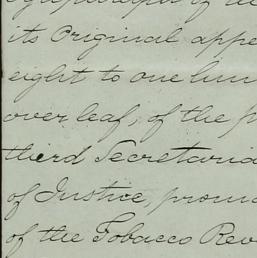 its Original appe
eight to one hun
over leaf, of the p
third Secretaria
of Justice, promu
of the Tobacco Rev